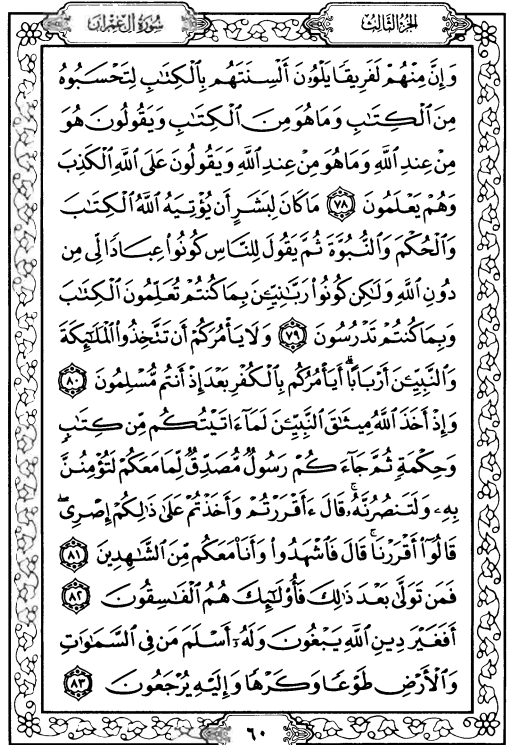 سُورَةُ آلِ عِمْرَان
الجزء الثالث
وَإِنَّ مِنْهُمْ لَفَرِيقًا يَلْوُۥنَ أَلْسِنَتَهُم بِالْكِتَٰبِ لِتَحْسَبُوهُ
مِنَ الْكِتَٰبِ وَمَا هُوَ مِنَ الْكِتَٰبِ وَيَقُولُونَ هُوَ
مِنْ عِندِ اللَّهِ وَمَا هُوَ مِنْ عِندِ اللَّهِ وَيَقُولُونَ عَلَى اللَّهِ الْكَذِبَ
وَهُمْ يَعْلَمُونَ ٧٨ مَا كَانَ لِبَشَرٍ أَن يُؤْتِيَهُ اللَّهُ الْكِتَٰبَ
وَالْحُكْمَ وَالنُّبُوَّةَ ثُمَّ يَقُولَ لِلنَّاسِ كُونُوا عِبَادًا لِّى مِن
دُونِ اللَّهِ وَلَٰكِن كُونُوا رَبَّٰنِيِّۦنَ بِمَا كُنتُمْ تُعَلِّمُونَ الْكِتَٰبَ
وَبِمَا كُنتُمْ تَدْرُسُونَ ٧٩ وَلَا يَأْمُرَكُمْ أَن تَتَّخِذُوا الْمَلَٰٓئِكَةَ
وَالنَّبِيِّۦنَ أَرْبَابًا ۗ أَيَأْمُرُكُم بِالْكُفْرِ بَعْدَ إِذْ أَنتُم مُّسْلِمُونَ ٨٠
وَإِذْ أَخَذَ اللَّهُ مِيثَٰقَ النَّبِيِّۦنَ لَمَآ ءَاتَيْتُكُم مِّن كِتَٰبٍ
وَحِكْمَةٍ ثُمَّ جَآءَكُمْ رَسُولٌ مُّصَدِّقٌ لِّمَا مَعَكُمْ لَتُؤْمِنُنَّ
بِهِۦ وَلَتَنصُرُنَّهُۥ ۚ قَالَ ءَأَقْرَرْتُمْ وَأَخَذْتُمْ عَلَىٰ ذَٰلِكُمْ إِصْرِى ۖ
قَالُوٓا أَقْرَرْنَا ۚ قَالَ فَاشْهَدُوا وَأَنَا۠ مَعَكُم مِّنَ الشَّٰهِدِينَ ٨١
فَمَن تَوَلَّىٰ بَعْدَ ذَٰلِكَ فَأُولَٰٓئِكَ هُمُ الْفَٰسِقُونَ ٨٢
أَفَغَيْرَ دِينِ اللَّهِ يَبْغُونَ وَلَهُۥٓ أَسْلَمَ مَن فِى السَّمَٰوَٰتِ
وَالْأَرْضِ طَوْعًا وَكَرْهًا وَإِلَيْهِ يُرْجَعُونَ ٨٣
٦٠